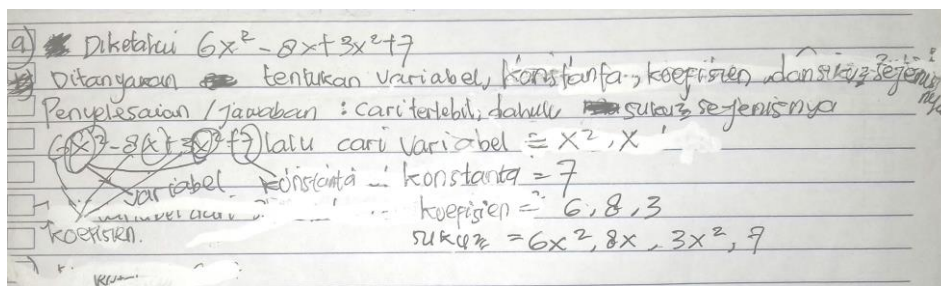 a) Diketahui 6x² - 8x + 3x² + 7
Ditanyakan tentukan variabel, konstanta, koefisien, dan suku² sejenis nya
Penyelesaian / jawaban : cari terlebih dahulu suku² sejenisnya
6x² - 8x + 3x² + 7 lalu cari variabel = x², x
variabel konstanta konstanta = 7
koefisien = 6, 8, 3
koefisien. suku² = 6x², 8x, 3x², 7